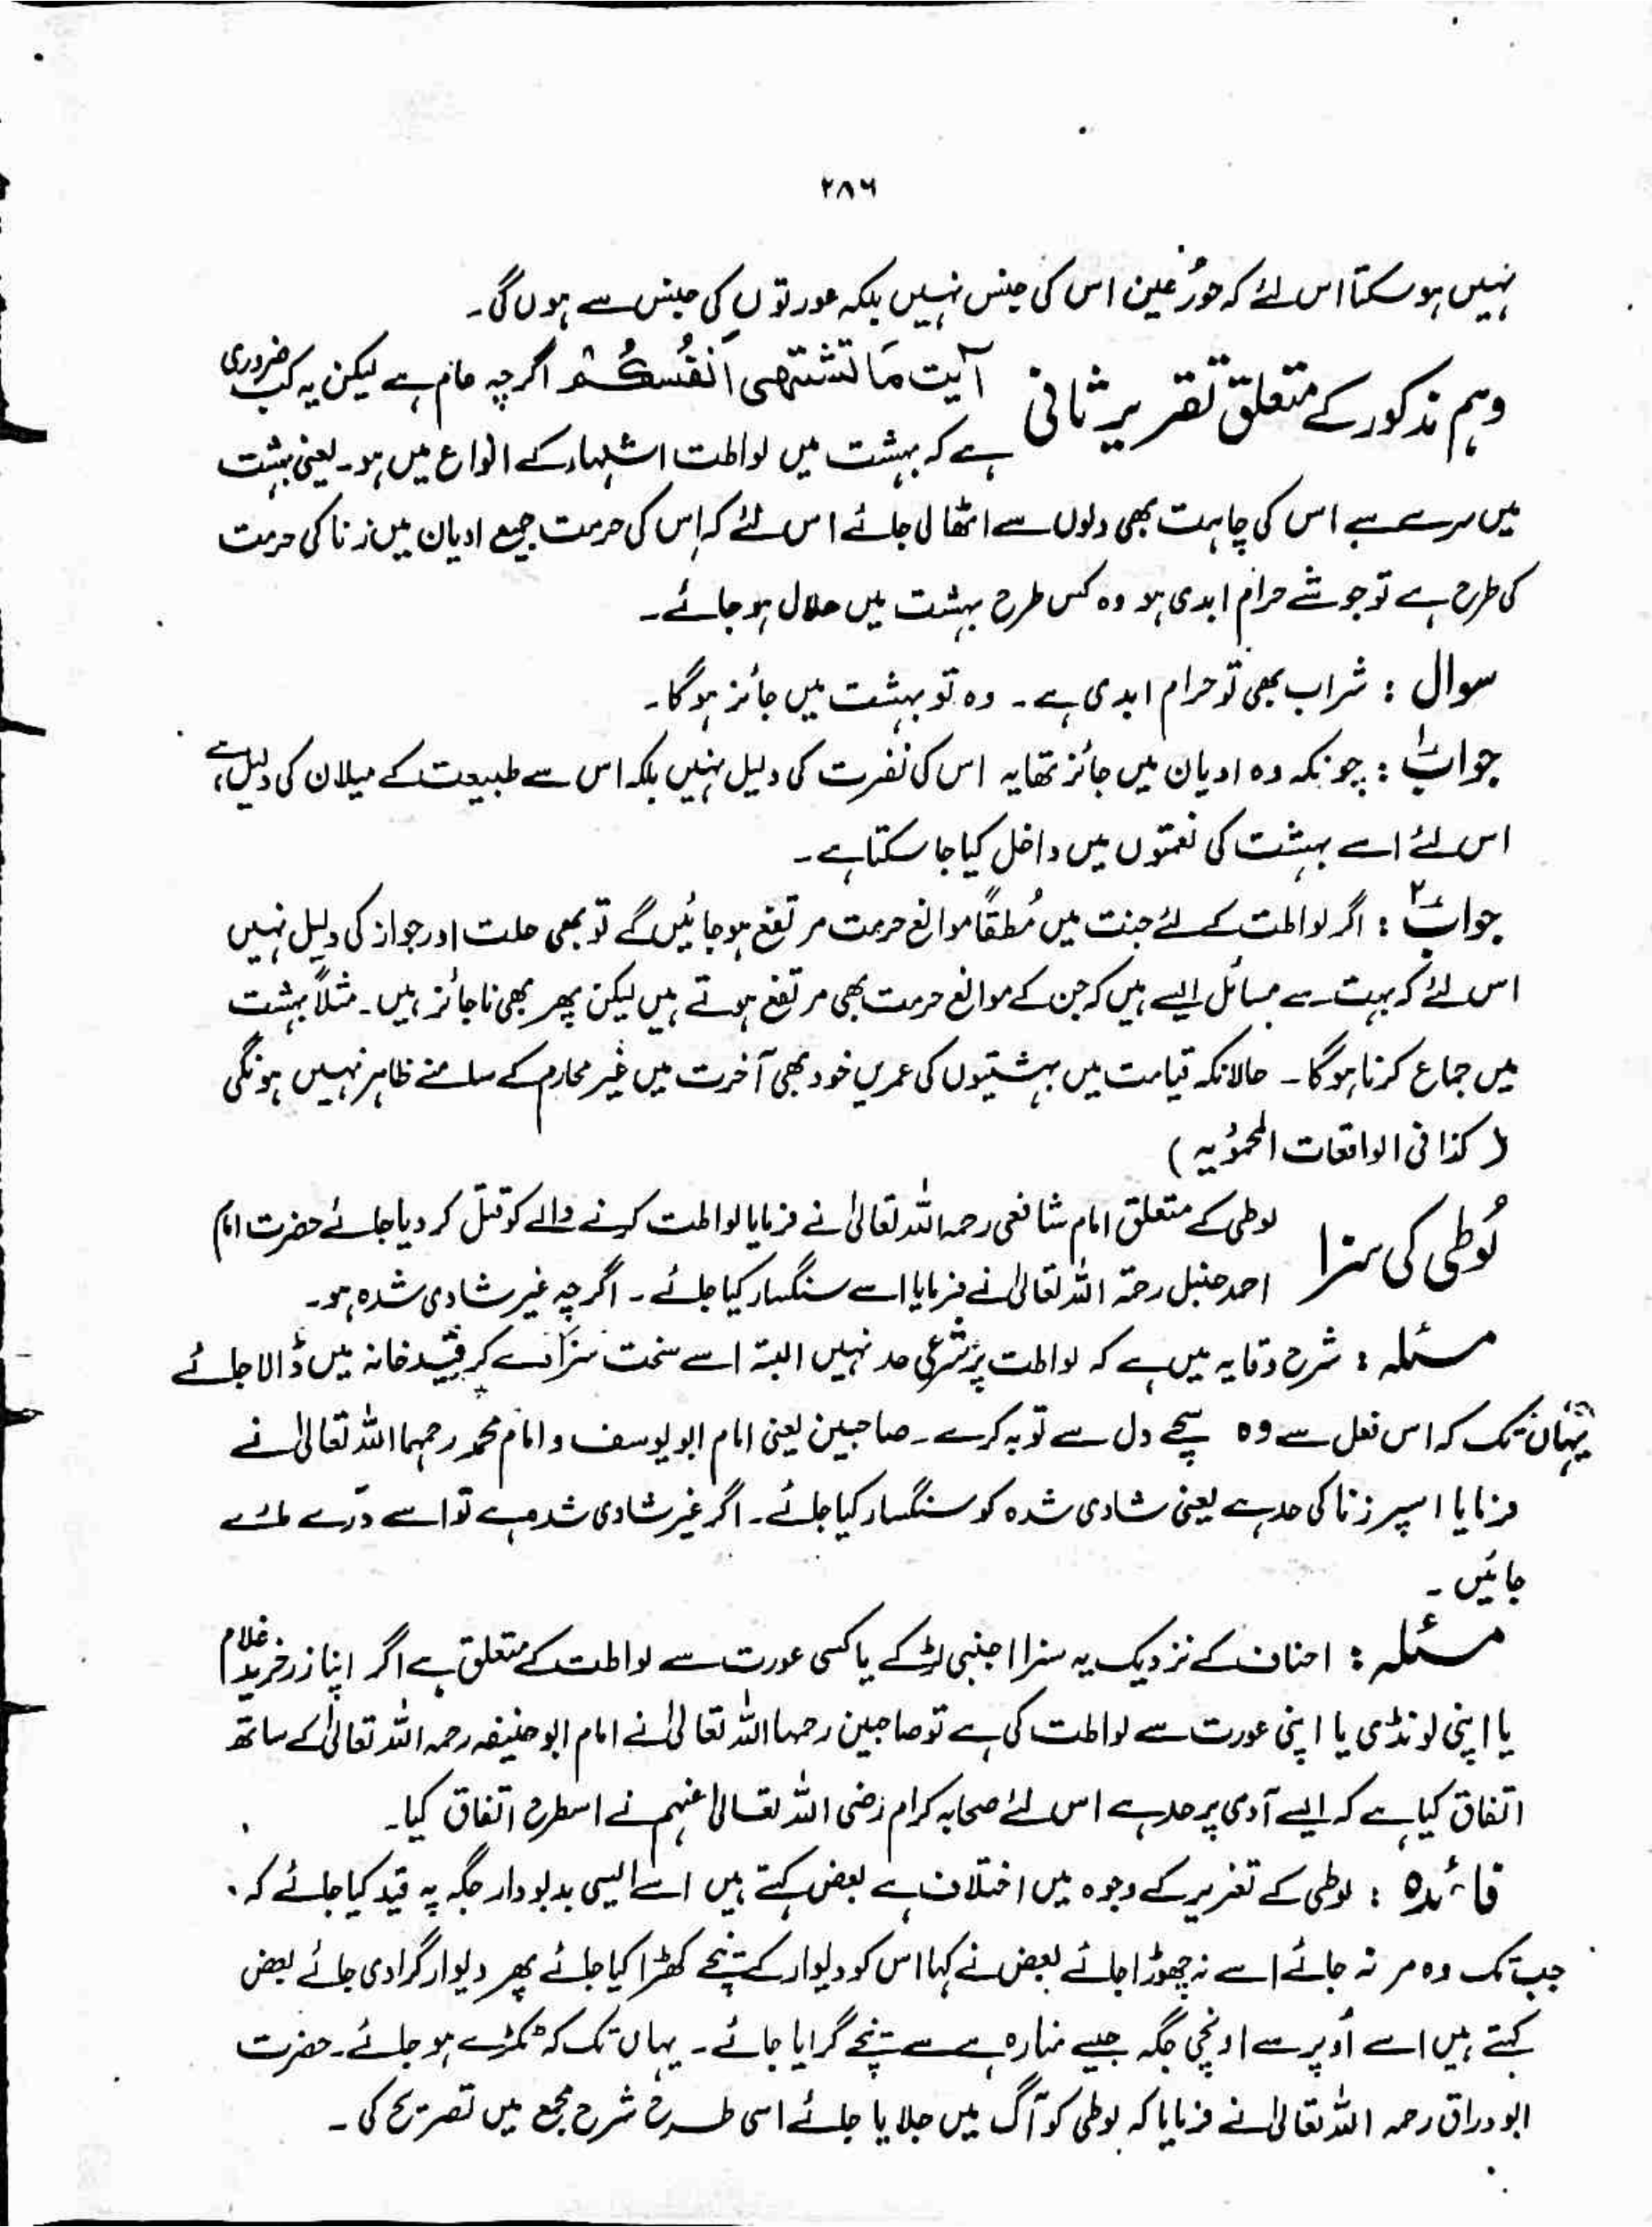 ۲۸۶
نہیں ہو سکتا اس لئے کہ حورُ عین اس کی جنس نہیں بلکہ عورتوں کی جنس سے ہوں گی۔
وہم مذکور کے متعلق تقریر ثانی
آیت مَا تَشْتَهِی اَنْفُسُکُمْ اگرچہ عام ہے لیکن یہ کب ضروری
ہے کہ بہشت میں لواطت اشتہاء کے انواع میں ہو۔ یعنی بہشت
میں سرے سے اس کی چاہت بھی دلوں سے اٹھا لی جائے اس لئے کہ اس کی حرمت جمیع ادیان میں زنا کی حرمت
کی طرح ہے تو جو شے حرام ابدی ہو وہ کس طرح بہشت میں حلال ہو جائے۔
سوال : شراب بھی تو حرام ابدی ہے۔ وہ تو بہشت میں جائز ہوگا۔
جواب ۱ : چونکہ وہ ادیان میں جائز تھا یہ اس کی نفرت کی دلیل نہیں بلکہ اس سے طبیعت کے میلان کی دلیل ہے،
اس لئے اسے بہشت کی نعمتوں میں داخل کیا جا سکتا ہے۔
جواب ۲ : اگر لواطت کے لئے جنت میں مُطلقاً موانع حرمت مرتفع ہو جائیں گے تو بھی حلت اور جواز کی دلیل نہیں
اس لئے کہ بہت سے مسائل ایسے ہیں کہ جن کے موانع حرمت بھی مرتفع ہوتے ہیں لیکن پھر بھی ناجائز ہیں۔ مثلاً بہشت
میں جماع کرنا ہوگا۔ حالانکہ قیامت میں بہشتیوں کی عمریں خود بھی آخرت میں غیر محارم کے سامنے ظاہر نہیں ہونگی
(کذا فی الواقعات المحمودیہ)
لُوطی کی سزا
لوطی کے متعلق امام شافعی رحمہ اللہ تعالیٰ نے فرمایا لواطت کرنے والے کو قتل کر دیا جائے حضرت امام
احمد حنبل رحمۃ اللہ تعالیٰ نے فرمایا اسے سنگسار کیا جائے۔ اگرچہ غیر شادی شدہ ہو۔
مسئلہ : شرح وقایہ میں ہے کہ لواطت پر شرعی حد نہیں البتہ اسے سخت سزا دے کر قید خانہ میں ڈالا جائے
یہاں تک کہ اس فعل سے وہ سچے دل سے توبہ کرے۔ صاحبین یعنی امام ابو یوسف و امام محمد رحمہما اللہ تعالیٰ نے
فرمایا اسپر زنا کی حد ہے یعنی شادی شدہ کو سنگسار کیا جائے۔ اگر غیر شادی شدہ ہے تو اسے دُرّے مارے
جائیں۔
مسئلہ : احناف کے نزدیک یہ سزا اجنبی لڑکے یا کسی عورت سے لواطت کے متعلق ہے اگر اپنا زر خرید غلام
یا اپنی لونڈی یا اپنی عورت سے لواطت کی ہے تو صاحبین رحمہما اللہ تعالیٰ نے امام ابو حنیفہ رحمہ اللہ تعالیٰ کے ساتھ
اتفاق کیا ہے کہ ایسے آدمی پر حد ہے اس لئے صحابہ کرام رضی اللہ تعالیٰ عنہم نے اسطرح اتفاق کیا۔
فائدہ : لوطی کے تعزیر کے وجوہ میں اختلاف ہے بعض کہتے ہیں اسے ایسی بدبودار جگہ پہ قید کیا جائے کہ
جب تک وہ مر نہ جائے اسے نہ چھوڑا جائے بعض نے کہا اس کو دیوار کے نیچے کھڑا کیا جائے پھر دیوار گرا دی جائے بعض
کہتے ہیں اسے اُوپر سے اونچی جگہ جیسے منارہ ہے سے نیچے گرایا جائے۔ یہاں تک کہ ٹکڑے ہو جائے۔ حضرت
ابو وراق رحمہ اللہ تعالیٰ نے فرمایا کہ لوطی کو آگ میں جلایا جائے اسی طرح شرح مجمع میں تصریح کی۔